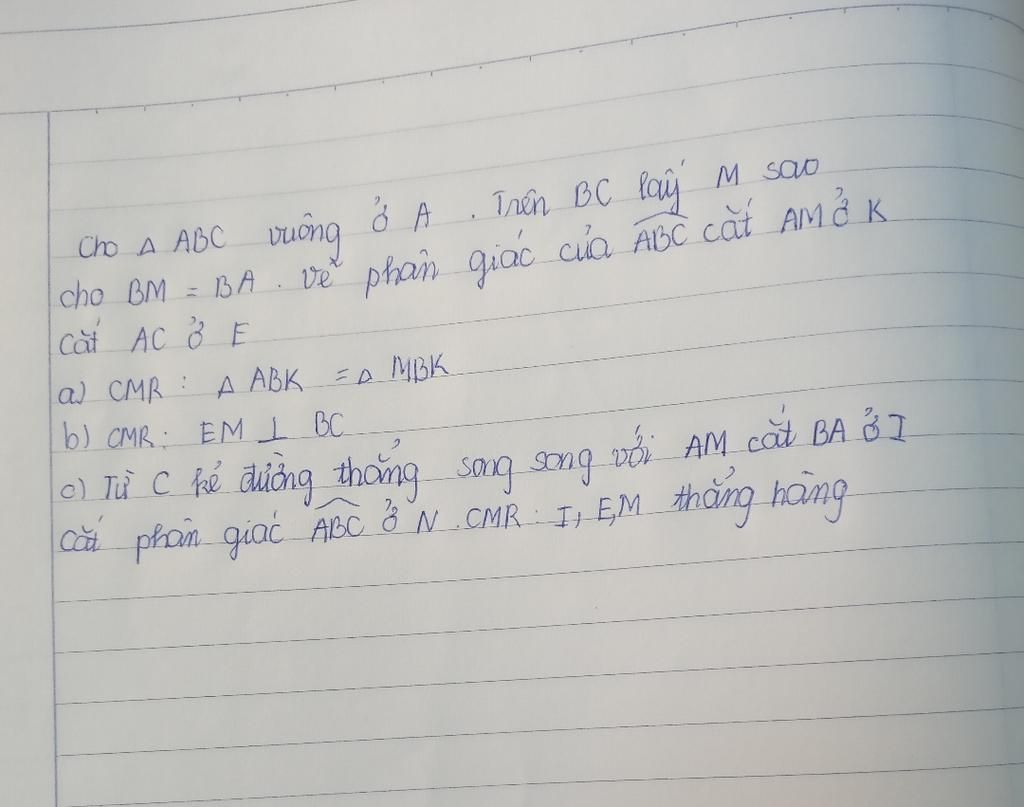 Cho Δ ABC vuông ở A . Trên BC lấy M sao
cho BM = BA . Vẽ phân giác của \widehat{ABC} cắt AM ở K
cắt AC ở E
a) CMR : Δ ABK = Δ MBK
b) CMR : EM ⊥ BC
c) Từ C kẻ đường thẳng song song với AM cắt BA ở I
cắt phân giác \widehat{ABC} ở N . CMR : I, E, M thẳng hàng